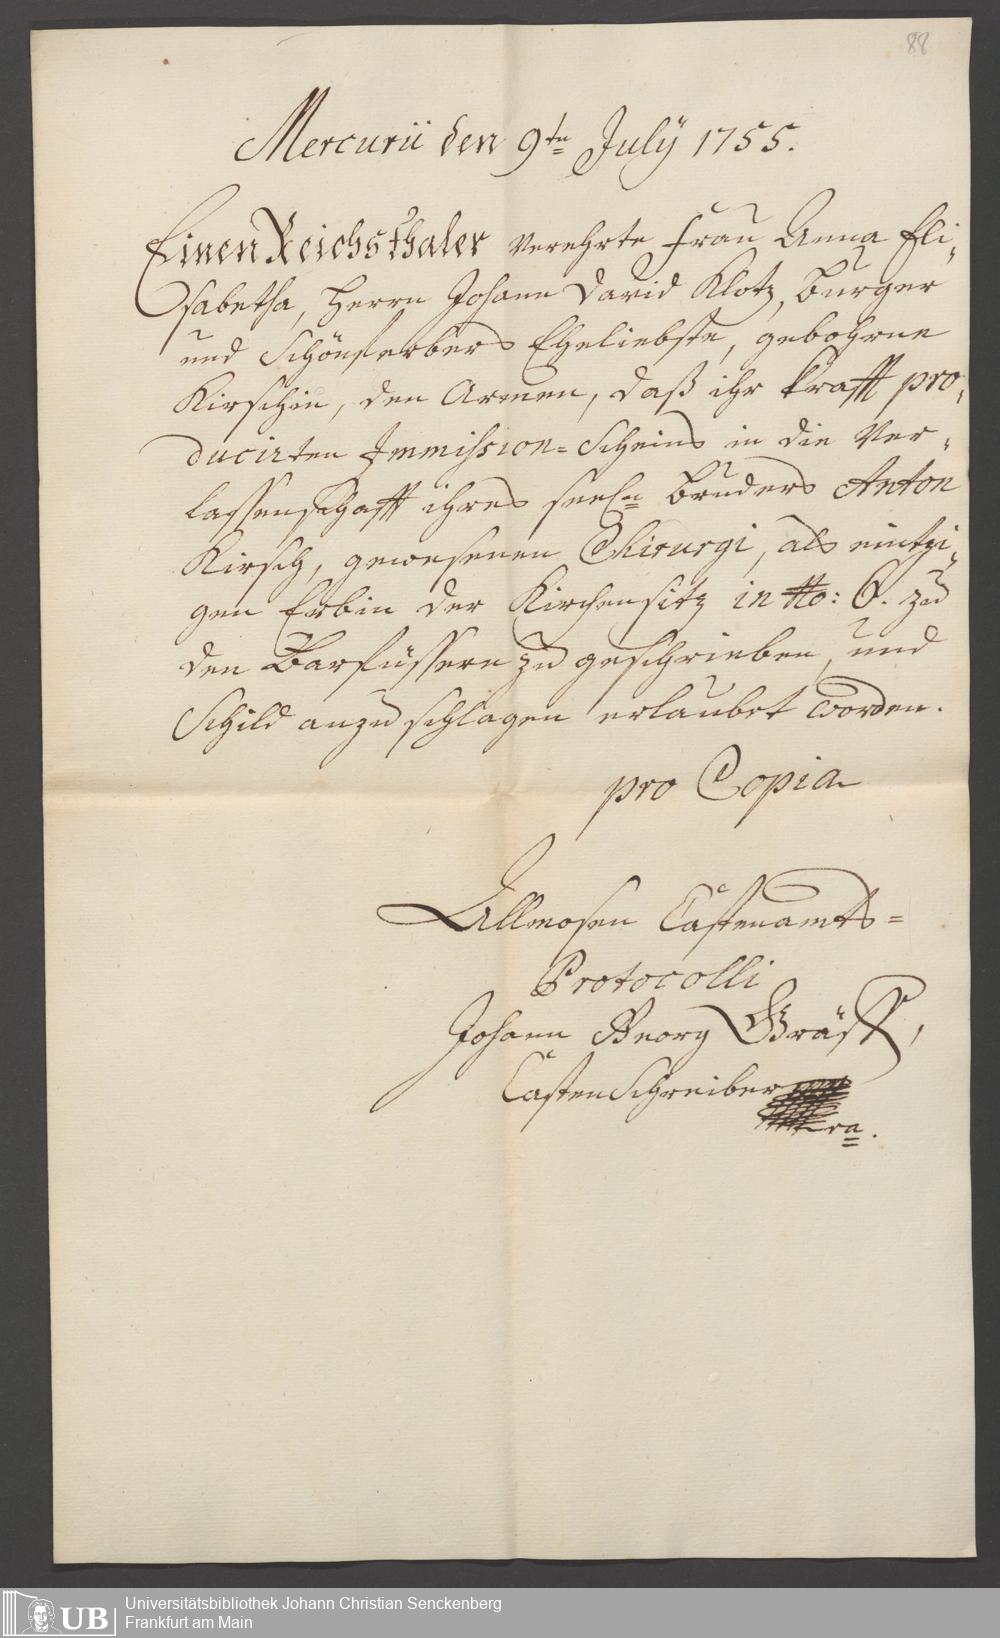 88
Mercurii den 9ten July 1755.
Einen Reichsthaler verehrte Frau Anna Eli-
sabetha, Herrn Johann David Klotz, Burger
und Schönferbers Eheliebste, gebohrne
Kirschin, den Armen, daß ihr krafft pro-
ducirten Immission-Scheins in die Ver-
lassenschafft ihres seeln Bruders Anton
Kirsch, gewesenen Chirurgi, als eintzi-
gen Erbin der Kirchensitz in No: 6. zu
den Barfüssern zu geschrieben, und
Schild anzuschlagen erlaubet worden.
pro Copia
Allmosen Castenamts-
Protocolli
Johann Georg Gräff,
Castenschreiber
Universitätsbibliothek Johann Christian Senckenberg
UB Frankfurt am Main